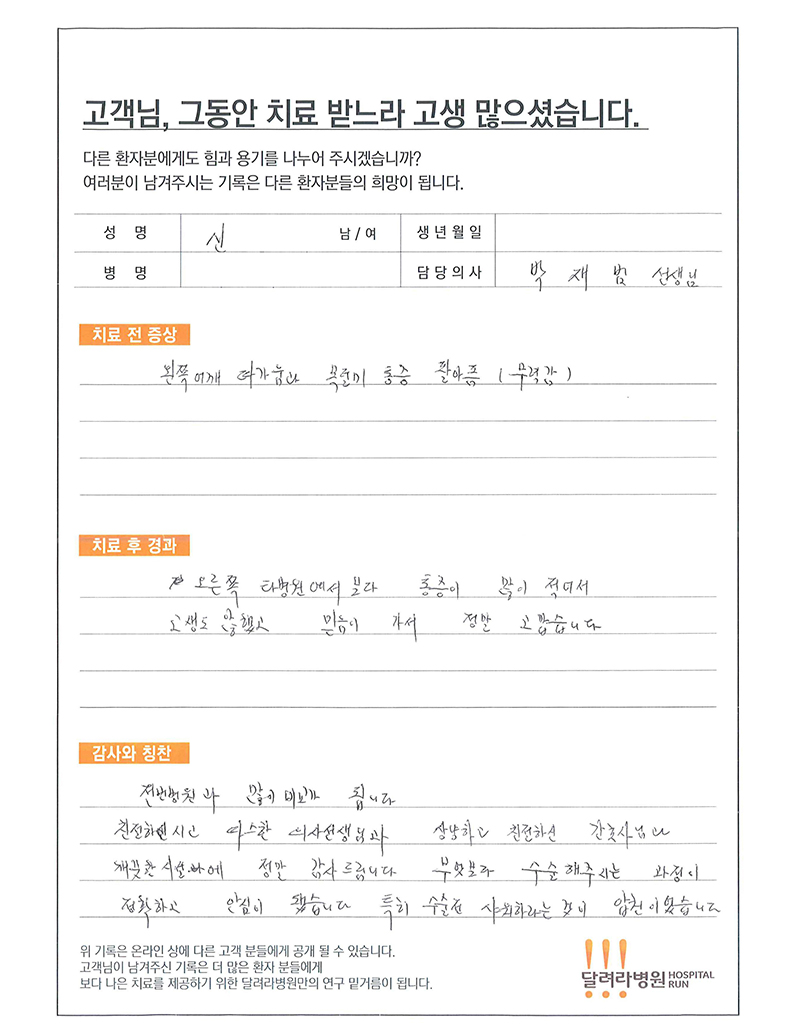 고객님, 그동안 치료 받느라 고생 많으셨습니다.
다른 환자분에게도 힘과 용기를 나누어 주시겠습니까?
여러분이 남겨주시는 기록은 다른 환자분들의 희망이 됩니다.
성 명 신 남 / 여 생 년 월 일
병 명 담 당 의 사 박 재 범 선생님
치료 전 증상
왼쪽어깨 따가움과 목덜미 통증 팔아픔 ( 무력감 )
치료 후 경과
오른쪽 타병원에서 보다 통증이 많이 적어서
고생도 안했고 믿음이 가서 정말 고맙습니다
감사와 칭찬
전번병원과 많이 비교가 됩니다
친절하신시고 따스한 의사선생님과 상냥하고 친절하신 간호사님과
깨끗한 정말 감사드립니다 무엇보다 수술해주시는 과정이
정확하고 안심이 됐습니다 특히 수술전 샤워하라는 것이 압권이었습니다
위 기록은 온라인 상에 다른 고객 분들에게 공개 될 수 있습니다.
고객님이 남겨주신 기록은 더 많은 환자 분들에게
보다 나은 치료를 제공하기 위한 달려라병원만의 연구 밑거름이 됩니다.
달려라병원 HOSPITAL RUN